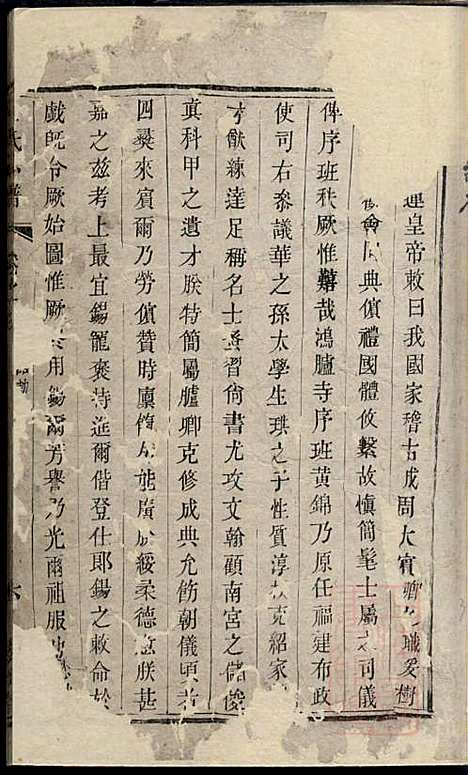 運皇帝敕曰我國家稽古成周大賓卿之職妥樹
會同典儐禮國體攸繫故慎簡髦士屬之司儀
俾序班秩厥惟囏哉鴻臚寺序班黃錦乃原任福建布政
使司右參議華之孫太學生珙之子性質淳克紹家
猷練達足稱名士蚤習尚書尤攻文翰顧南宮之儲俊
真科甲之遺才朕特簡屬臚卿克修成典允飭朝儀頃者
四裔來賓爾乃勞儐贊時廩餼能廣於綏柔德意朕甚
嘉之茲考上最宜錫寵褒特進爾偕登仕郎錫之敕命於
戲旣令厥始圖惟厥用錫爾芳譽乃光爾祖服